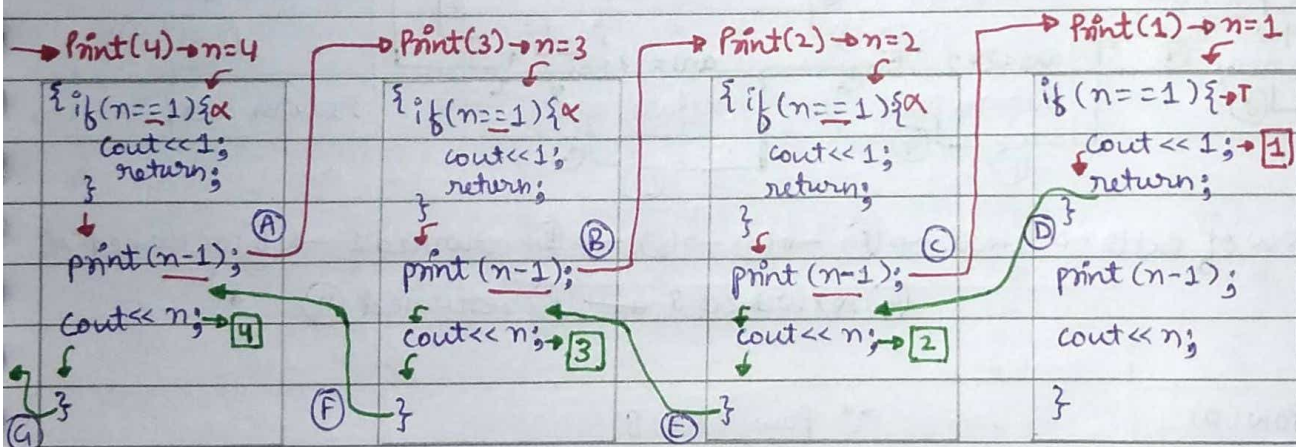 → Print(4) → n=4
{ if(n==1){α
cout<<1;
return;
}
print(n-1);
cout<< n; → 4
}
A
→ Print(3) → n=3
{ if(n==1){α
cout<<1;
return;
}
print (n-1);
cout<< n; → 3
}
B
→ Print(2) → n=2
{ if(n==1){α
cout<<1;
return;
}
print (n-1);
cout<< n; → 2
}
C
→ Print(1) → n=1
if (n==1){→T
cout << 1; → 1
return;
}
print (n-1);
cout << n;
}
D
E
F
G